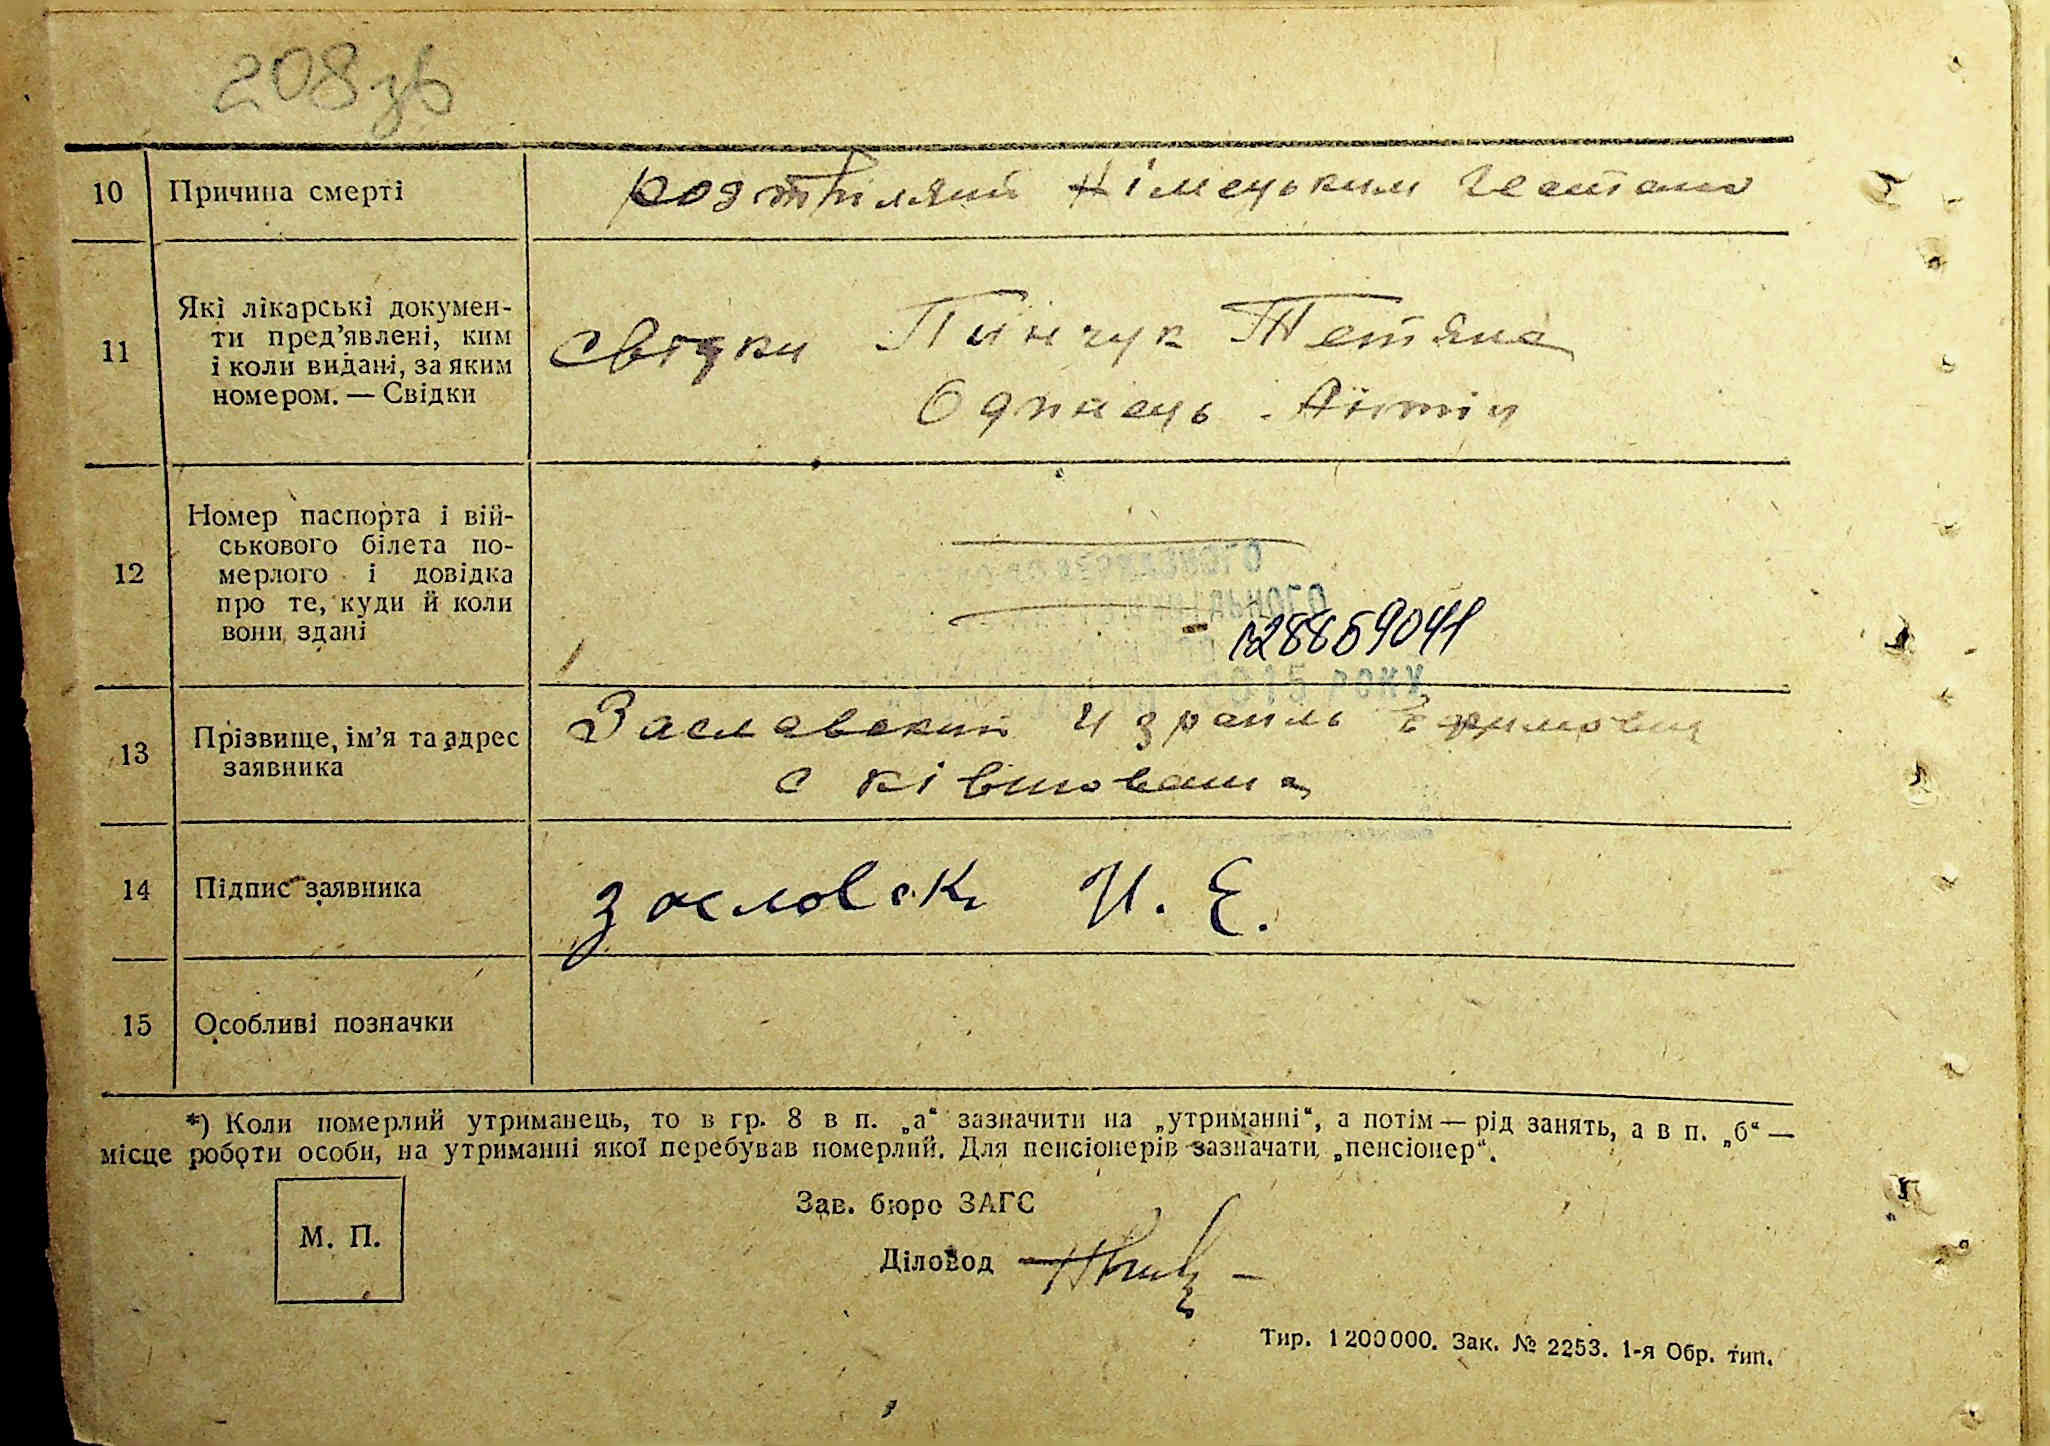 208зв
10 Причина смерті розтріляний Німецьким Гестапо
11 Які лікарські докумен-
ти пред’явлені, ким
і коли видані, за яким
номером. — Свідки
Свідки Пинчук Тетяна
Одинець Антін
12 Номер паспорта і вій-
ськового білета по-
мерлого і довідка
про те, куди й коли
вони здані
2015 РОКУ
13 Прізвище, ім’я та адрес
заявника
Заславский Израиль Ефимович
с Ківшовата
14 Підпис заявника Заславск И. Е.
15 Особливі позначки
*) Коли померлий утриманець, то в гр. 8 в п. „а“ зазначити на „утриманні“, а потім — рід занять, а в п. „б“ —
місце роботи особи, на утриманні якої перебував померлий. Для пенсіонерів зазначати „пенсіонер“.
М. П.
Зав. бюро ЗАГС
Діловод
Тир. 1200000. Зак. № 2253. 1-я Обр. тип.